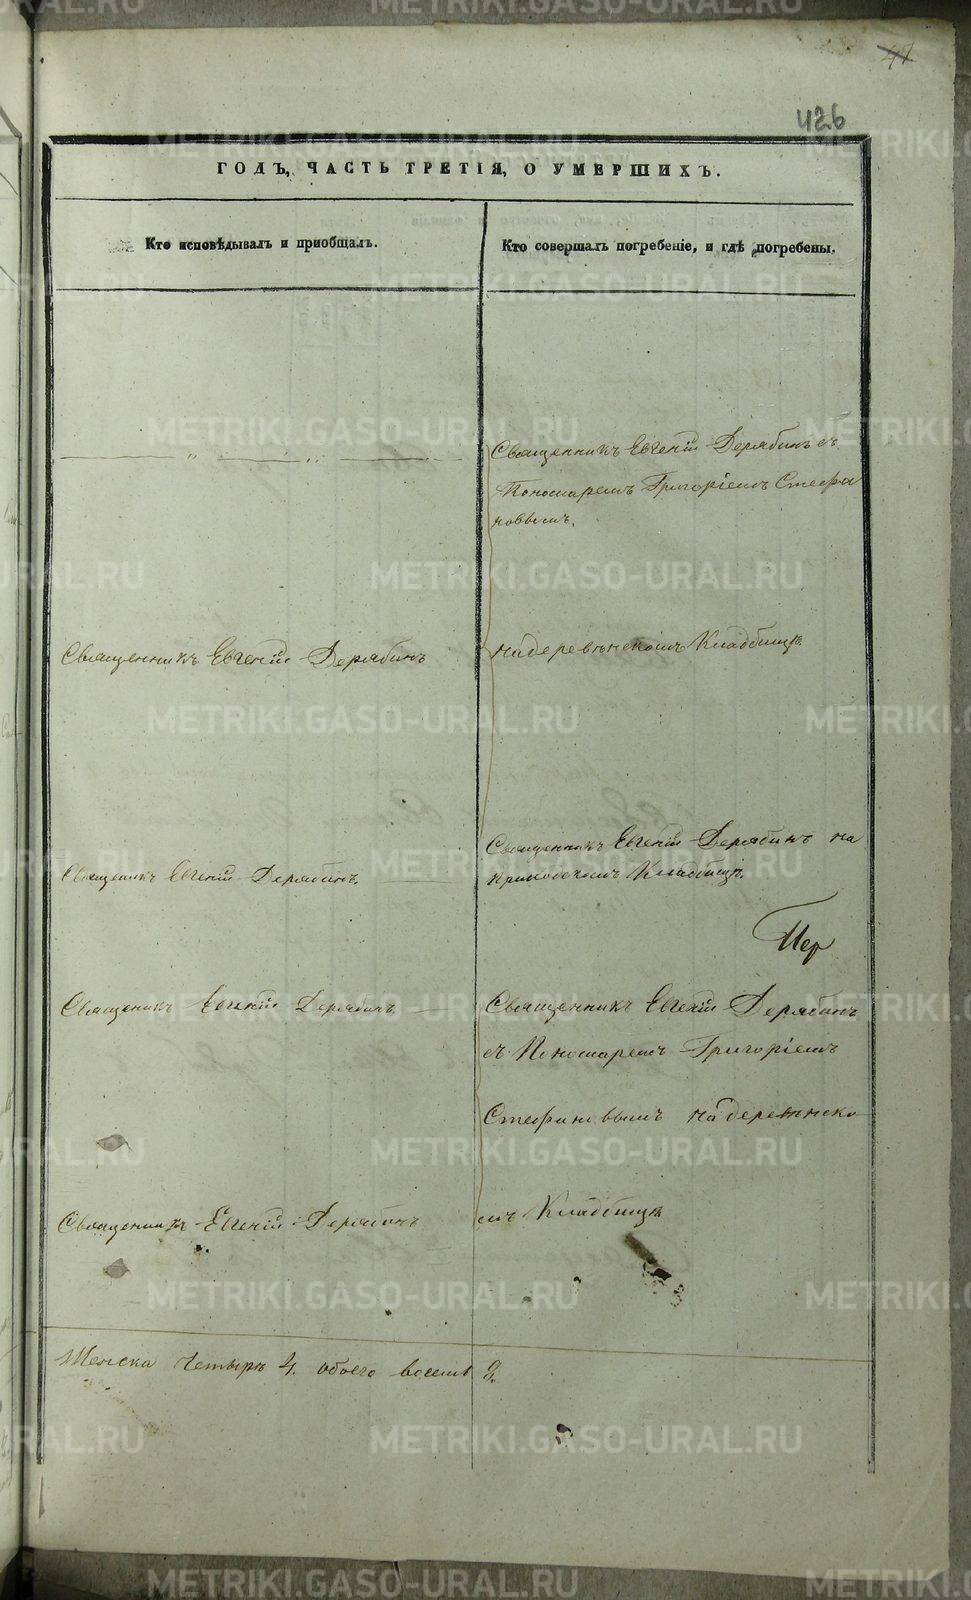 47
426
ГОДЪ, ЧАСТЬ ТРЕТІЯ, О УМЕРШИХЪ.
Кто исповѣдывалъ и пріобщалъ.
Кто совершалъ погребеніе, и гдѣ погребены.
Священникъ Евгеній Дерябинъ съ
Пономаремъ Григоріемъ Стефа
новымъ.
Священникъ Евгеній Дерябинъ
на деревенскомъ Кладбищѣ
Священникъ Евгеній Дерябинъ на
Священикъ Евгеній Дерябинъ.
приходскомъ Кладбищѣ.
Священикъ Евгеній Дерябинъ
Священникъ Евгеній Дерябинъ
съ Пономаремъ Григоріемъ
Стефановымъ на деревенско
Священникъ Евгеній Дерябинъ
мъ Кладбищѣ
Женска четыре 4. обоего восемь 8.
METRIKI.GASO-URAL.RU